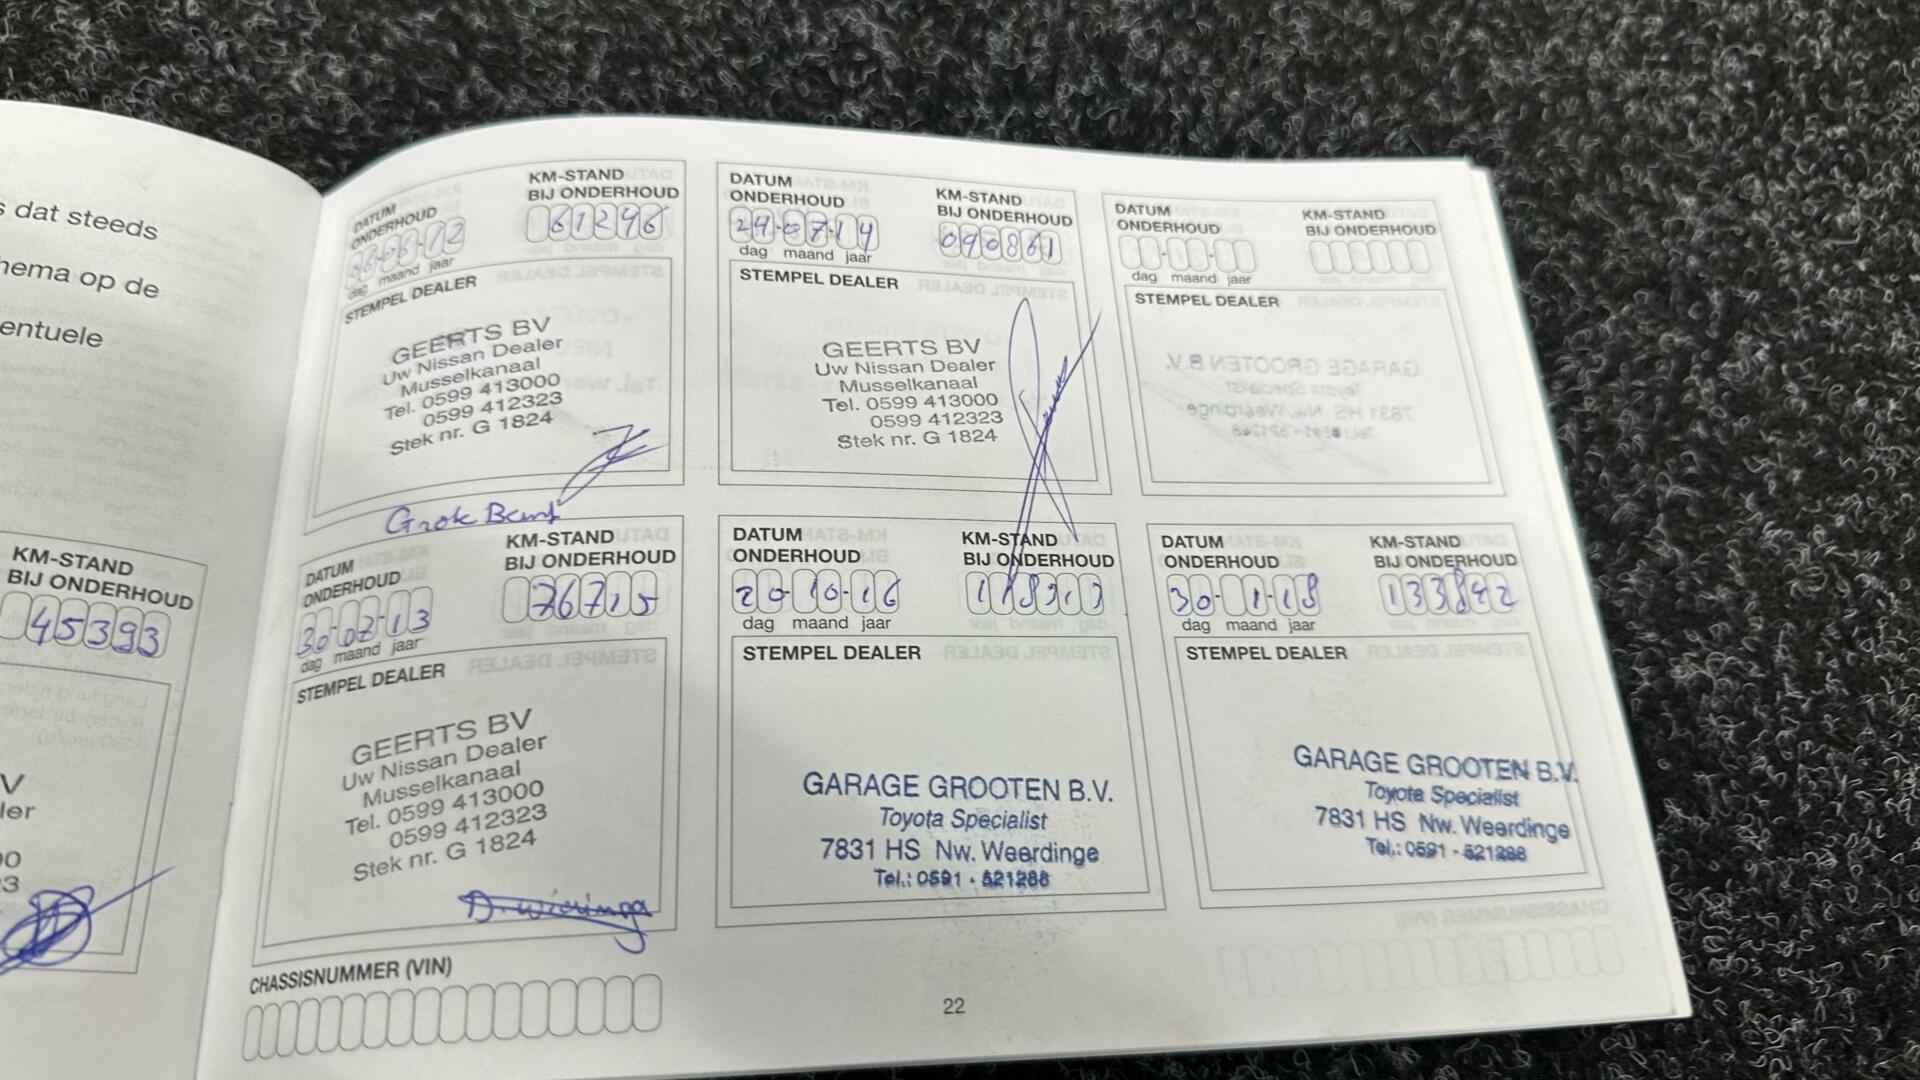 s dat steeds
hema op de
entuele
KM-STAND
BIJ ONDERHOUD
45393
V
ler
00
23
DATUM
ONDERHOUD
06-06-12
dag maand jaar
KM-STAND
BIJ ONDERHOUD
61246
STEMPEL DEALER
GEERTS BV
Uw Nissan Dealer
Musselkanaal
Tel. 0599 413000
0599 412323
Stek nr. G 1824
Grote Beurt
DATUM
ONDERHOUD
24-07-14
dag maand jaar
KM-STAND
BIJ ONDERHOUD
090861
STEMPEL DEALER
GEERTS BV
Uw Nissan Dealer
Musselkanaal
Tel. 0599 413000
0599 412323
Stek nr. G 1824
DATUM
ONDERHOUD
dag maand jaar
KM-STAND
BIJ ONDERHOUD
STEMPEL DEALER
DATUM
ONDERHOUD
30-07-13
dag maand jaar
KM-STAND
BIJ ONDERHOUD
76715
STEMPEL DEALER
GEERTS BV
Uw Nissan Dealer
Musselkanaal
Tel. 0599 413000
0599 412323
Stek nr. G 1824
D. Wieringa
DATUM
ONDERHOUD
20-10-16
dag maand jaar
KM-STAND
BIJ ONDERHOUD
118313
STEMPEL DEALER
GARAGE GROOTEN B.V.
Toyota Specialist
7831 HS Nw. Weerdinge
Tel.: 0591 - 521288
DATUM
ONDERHOUD
30-1-18
dag maand jaar
KM-STAND
BIJ ONDERHOUD
133842
STEMPEL DEALER
GARAGE GROOTEN B.V.
Toyota Specialist
7831 HS Nw. Weerdinge
Tel.: 0591 - 521288
CHASSISNUMMER (VIN)
22